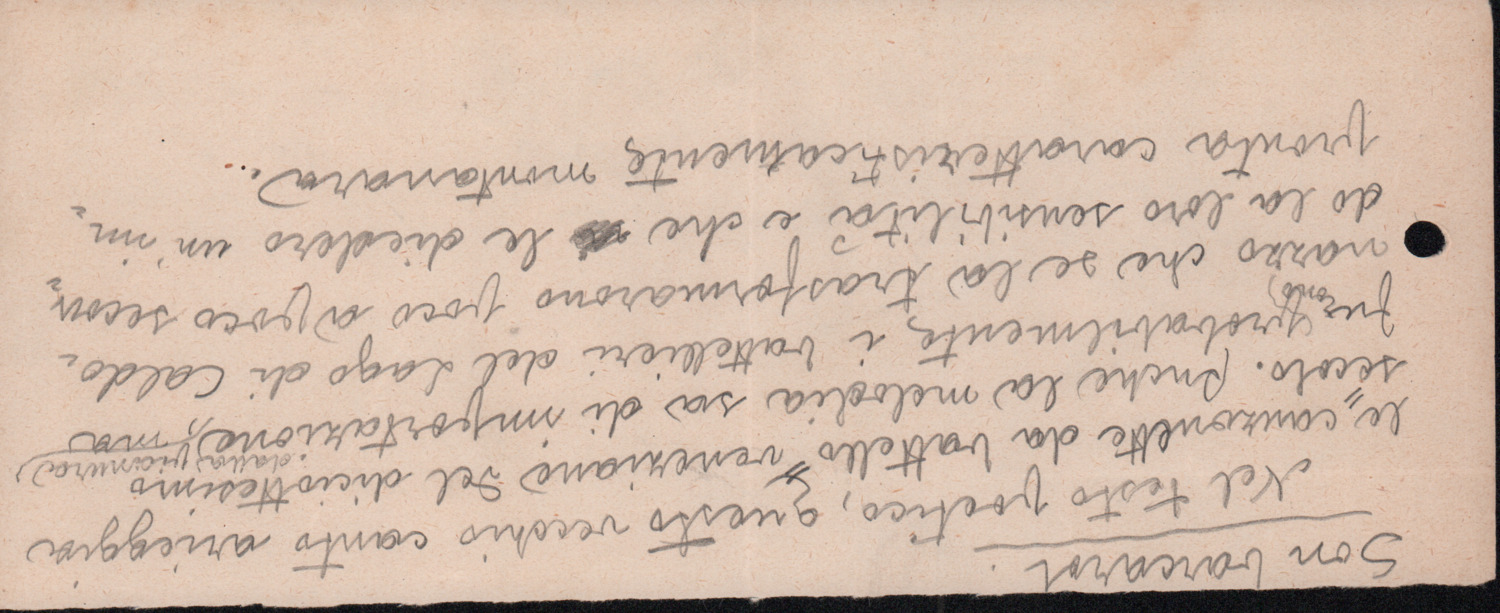 Son barcarol.
Nel testo poetico, questo vecchio canto arieggia
le "canzonette da battello" veneziane del diciottesimo
secolo. Anche la melodia sa di importazione, ma
dalla pianura,
fu probabilmente, i battellieri del Lago di Caldo-
rono,
nazzo che se la trasformarono poco a poco secon-
do la loro sensibilità e che le diedero un'im-
pronta caratteristicamente montanara.